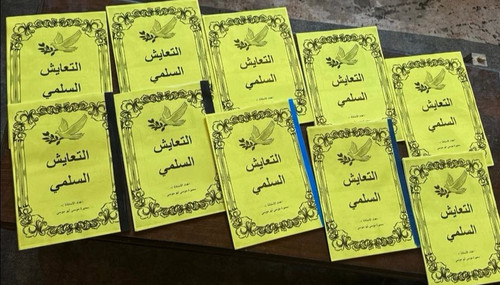 التعايش
السلمي
التعايش
السلمي
التعايش
السلمي
التعايش
السلمي
التعايش
السلمي
التعايش
السلمي
التعايش
السلمي
التعايش
السلمي
التعايش
السلمي
التعايش
السلمي